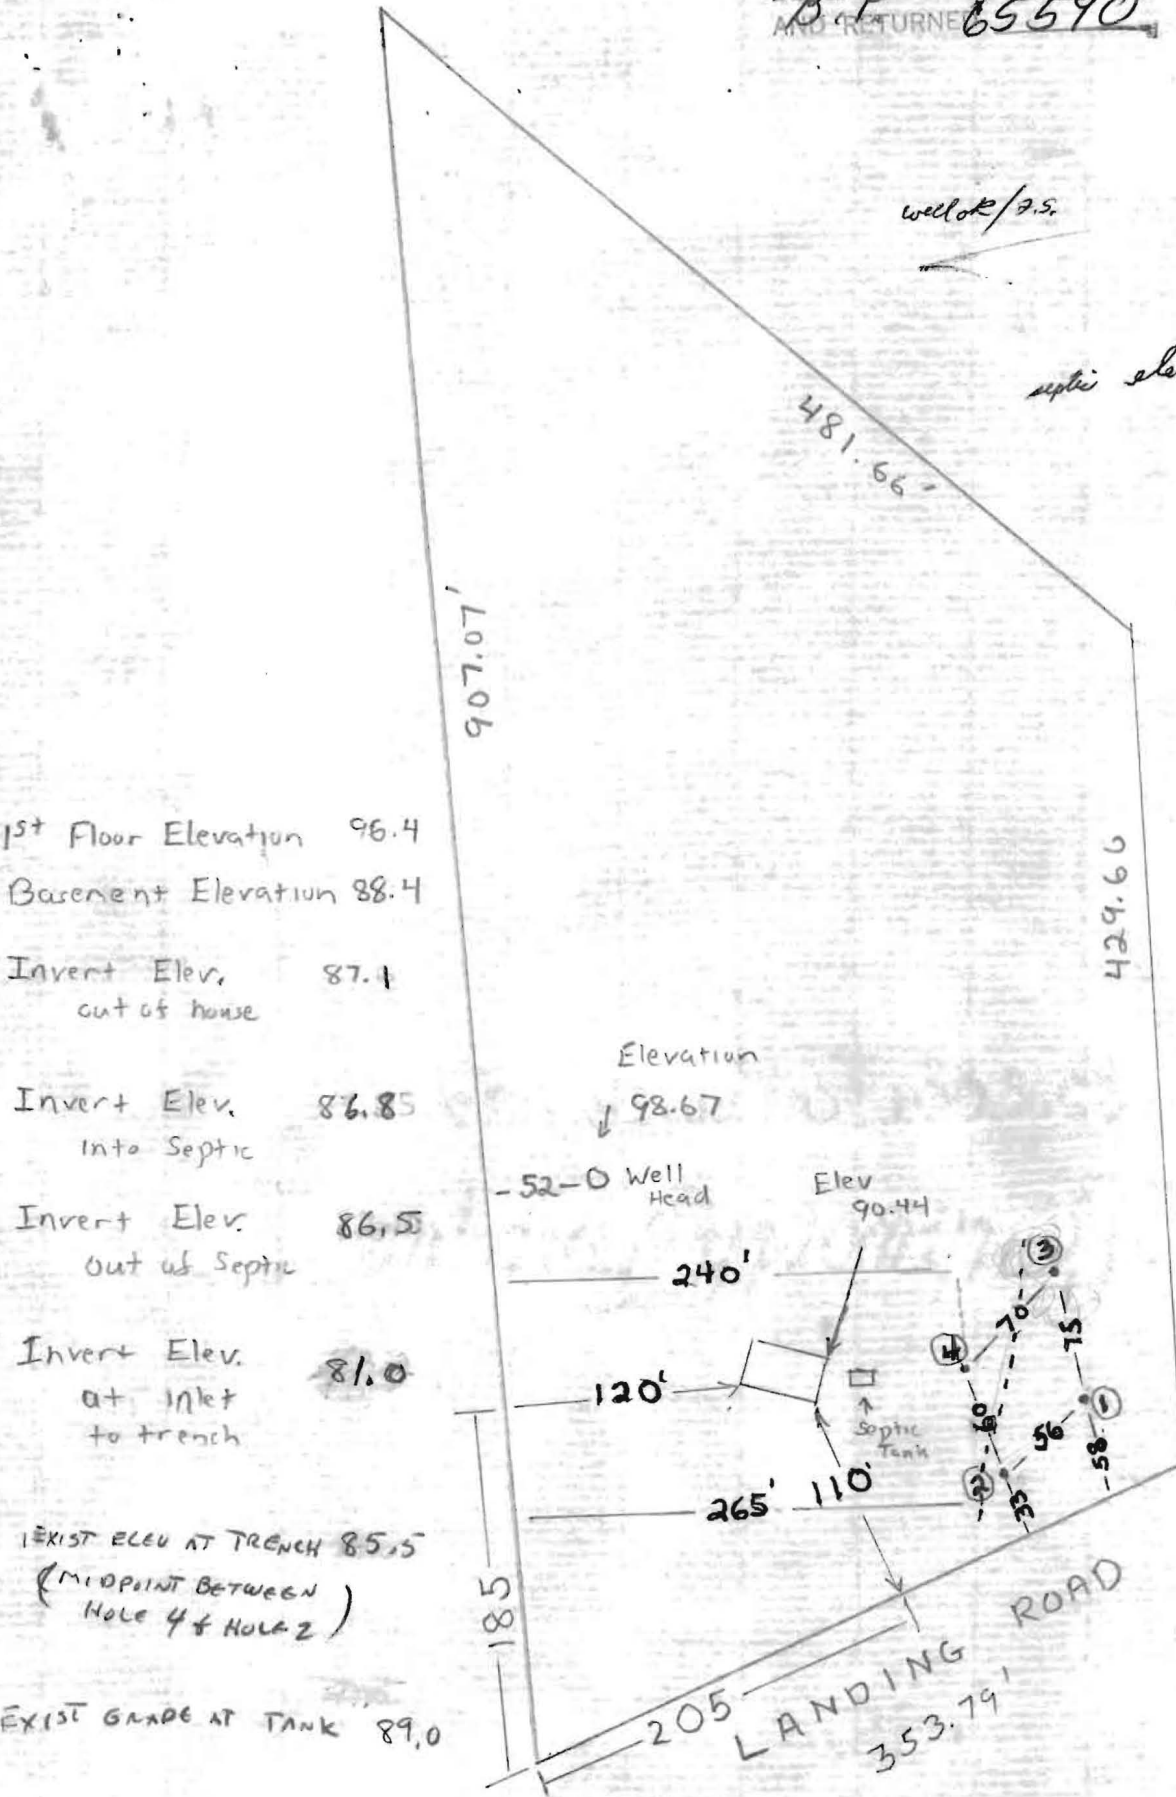 B.P. 65590
AND RETURNE
well ok/
septic ele
481.66'
907.07'
429.66
1st Floor Elevation 96.4
Basement Elevation 88.4
Invert Elev. 87.1
out of house
Invert Elev. 86.85
into Septic
Invert Elev. 86.5
out of Septic
Invert Elev. 81.0
at inlet
to trench
EXIST ELEV AT TRENCH 85.5
(MIDPOINT BETWEEN
HOLE 4 & HOLE 2)
EXIST GRADE AT TANK 89.0
Elevation
98.67
52 Well
Head
Elev
90.44
240'
120'
Septic
Tank
265'
110'
3
70
75
4
60
1
56
58
2
33
185
205
LANDING ROAD
353.79'